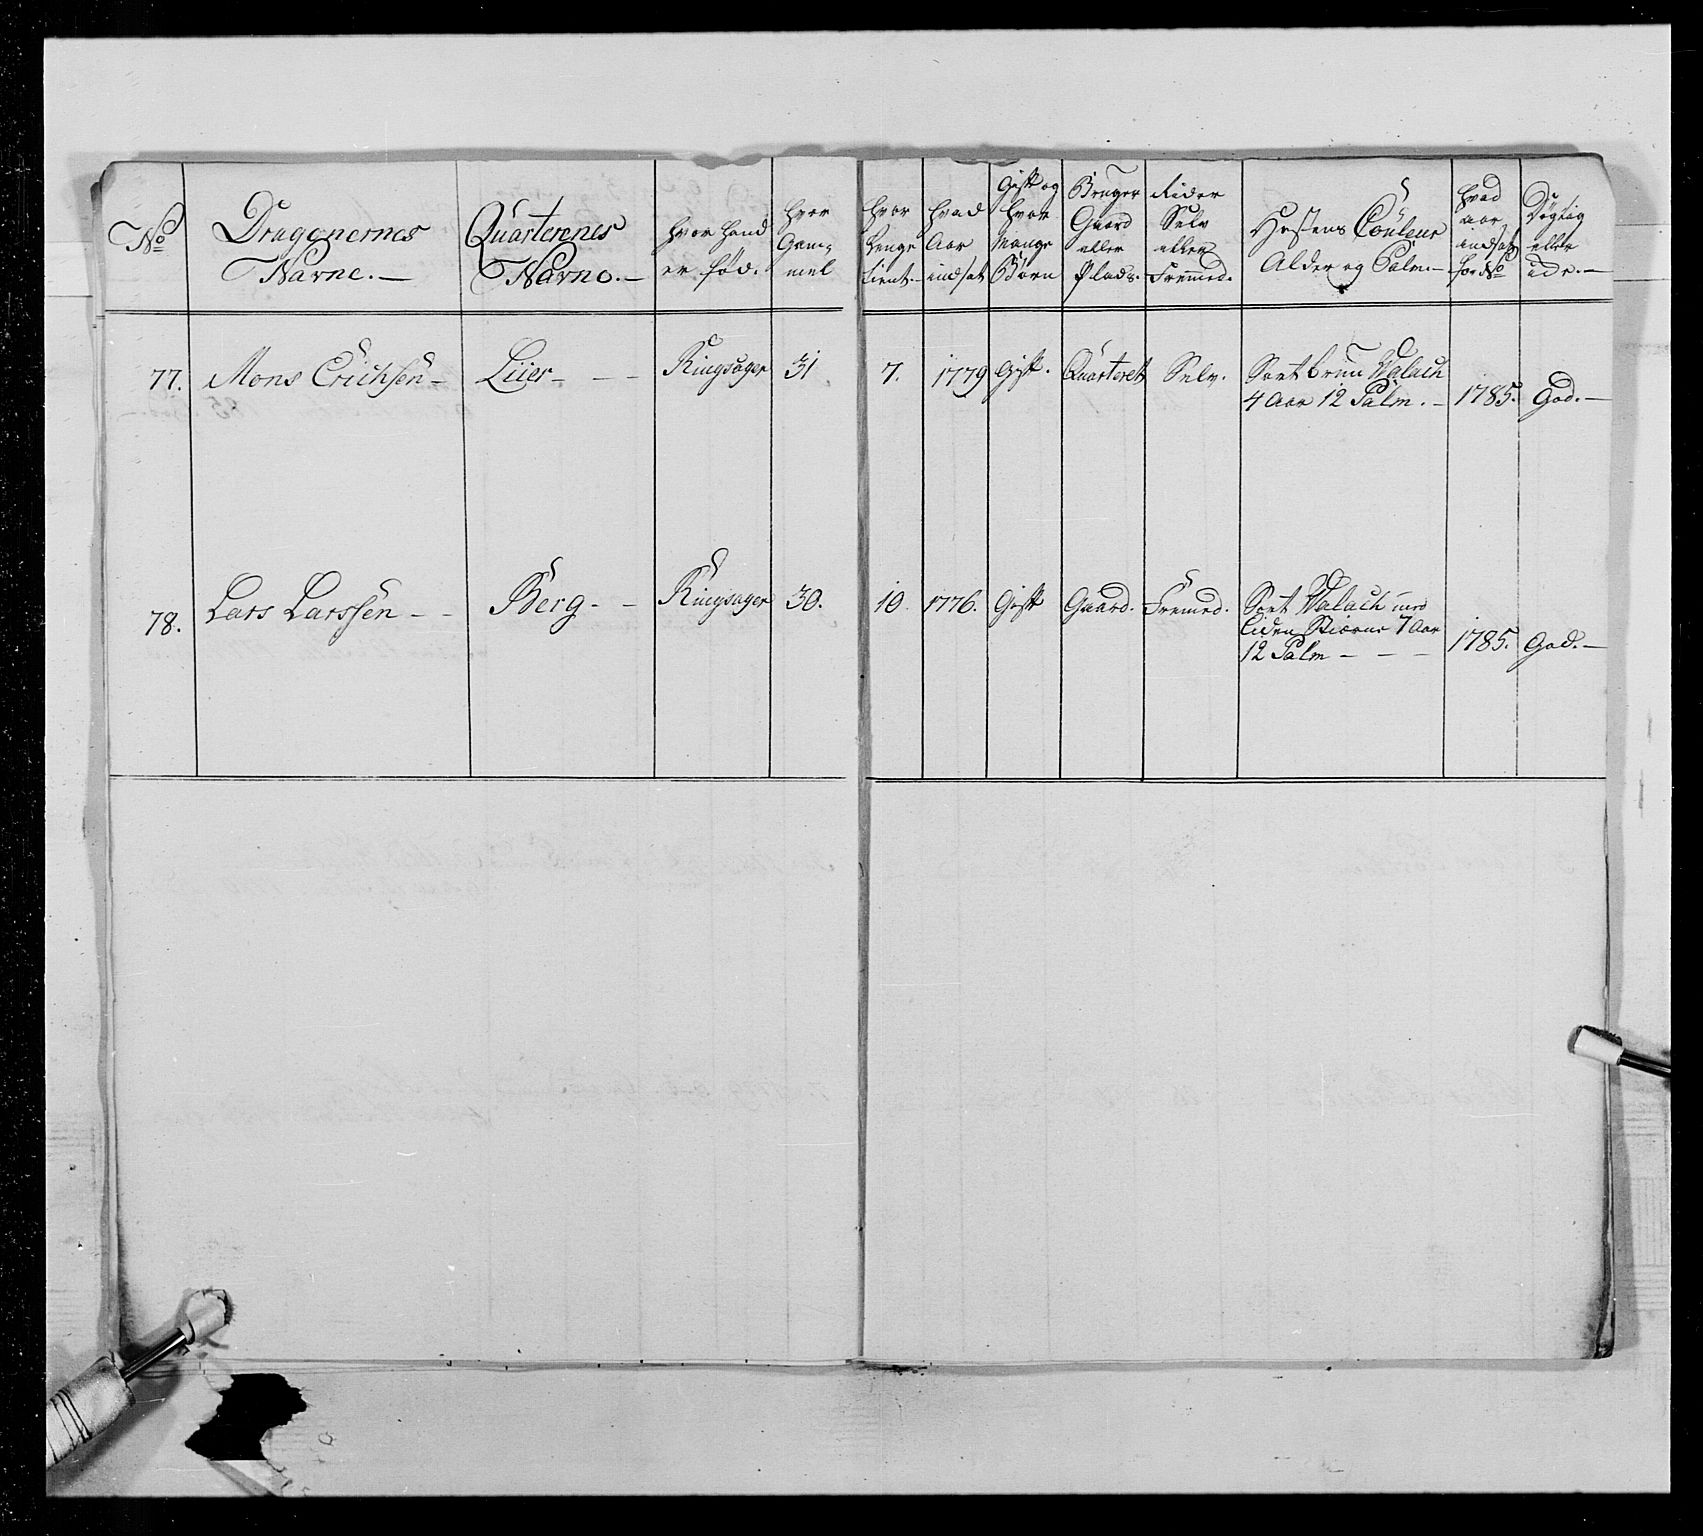 No
Dragonernes
Navne.
Quarterenes
Navne.
hvor hand
er fød.
hvor
Gam-
mel
hvor
lenge
tient.
hvad
Aar
indsat
Gift og
hvor
mange
Børn
Bruger
Gaard
eller
Plads.
Rider
Selv
eller
Fremed.
Hestens Couleur
Alder og Palm.
hvad
aar
indsat
for No
Dygtig
eller
ide.
77. Mons Erichsen Liier Ringsager 31 7. 1779 Gift. Quarteret Selv. Sort brun Valach
4 Aar 12 Palm. 1785. God.
78. Lars Larssen Berg Ringsager 30. 10 1776. Gift Gaard. Fremed. Sort Valach med
liden Stierne 7 Aar
12 Palm 1785. God.